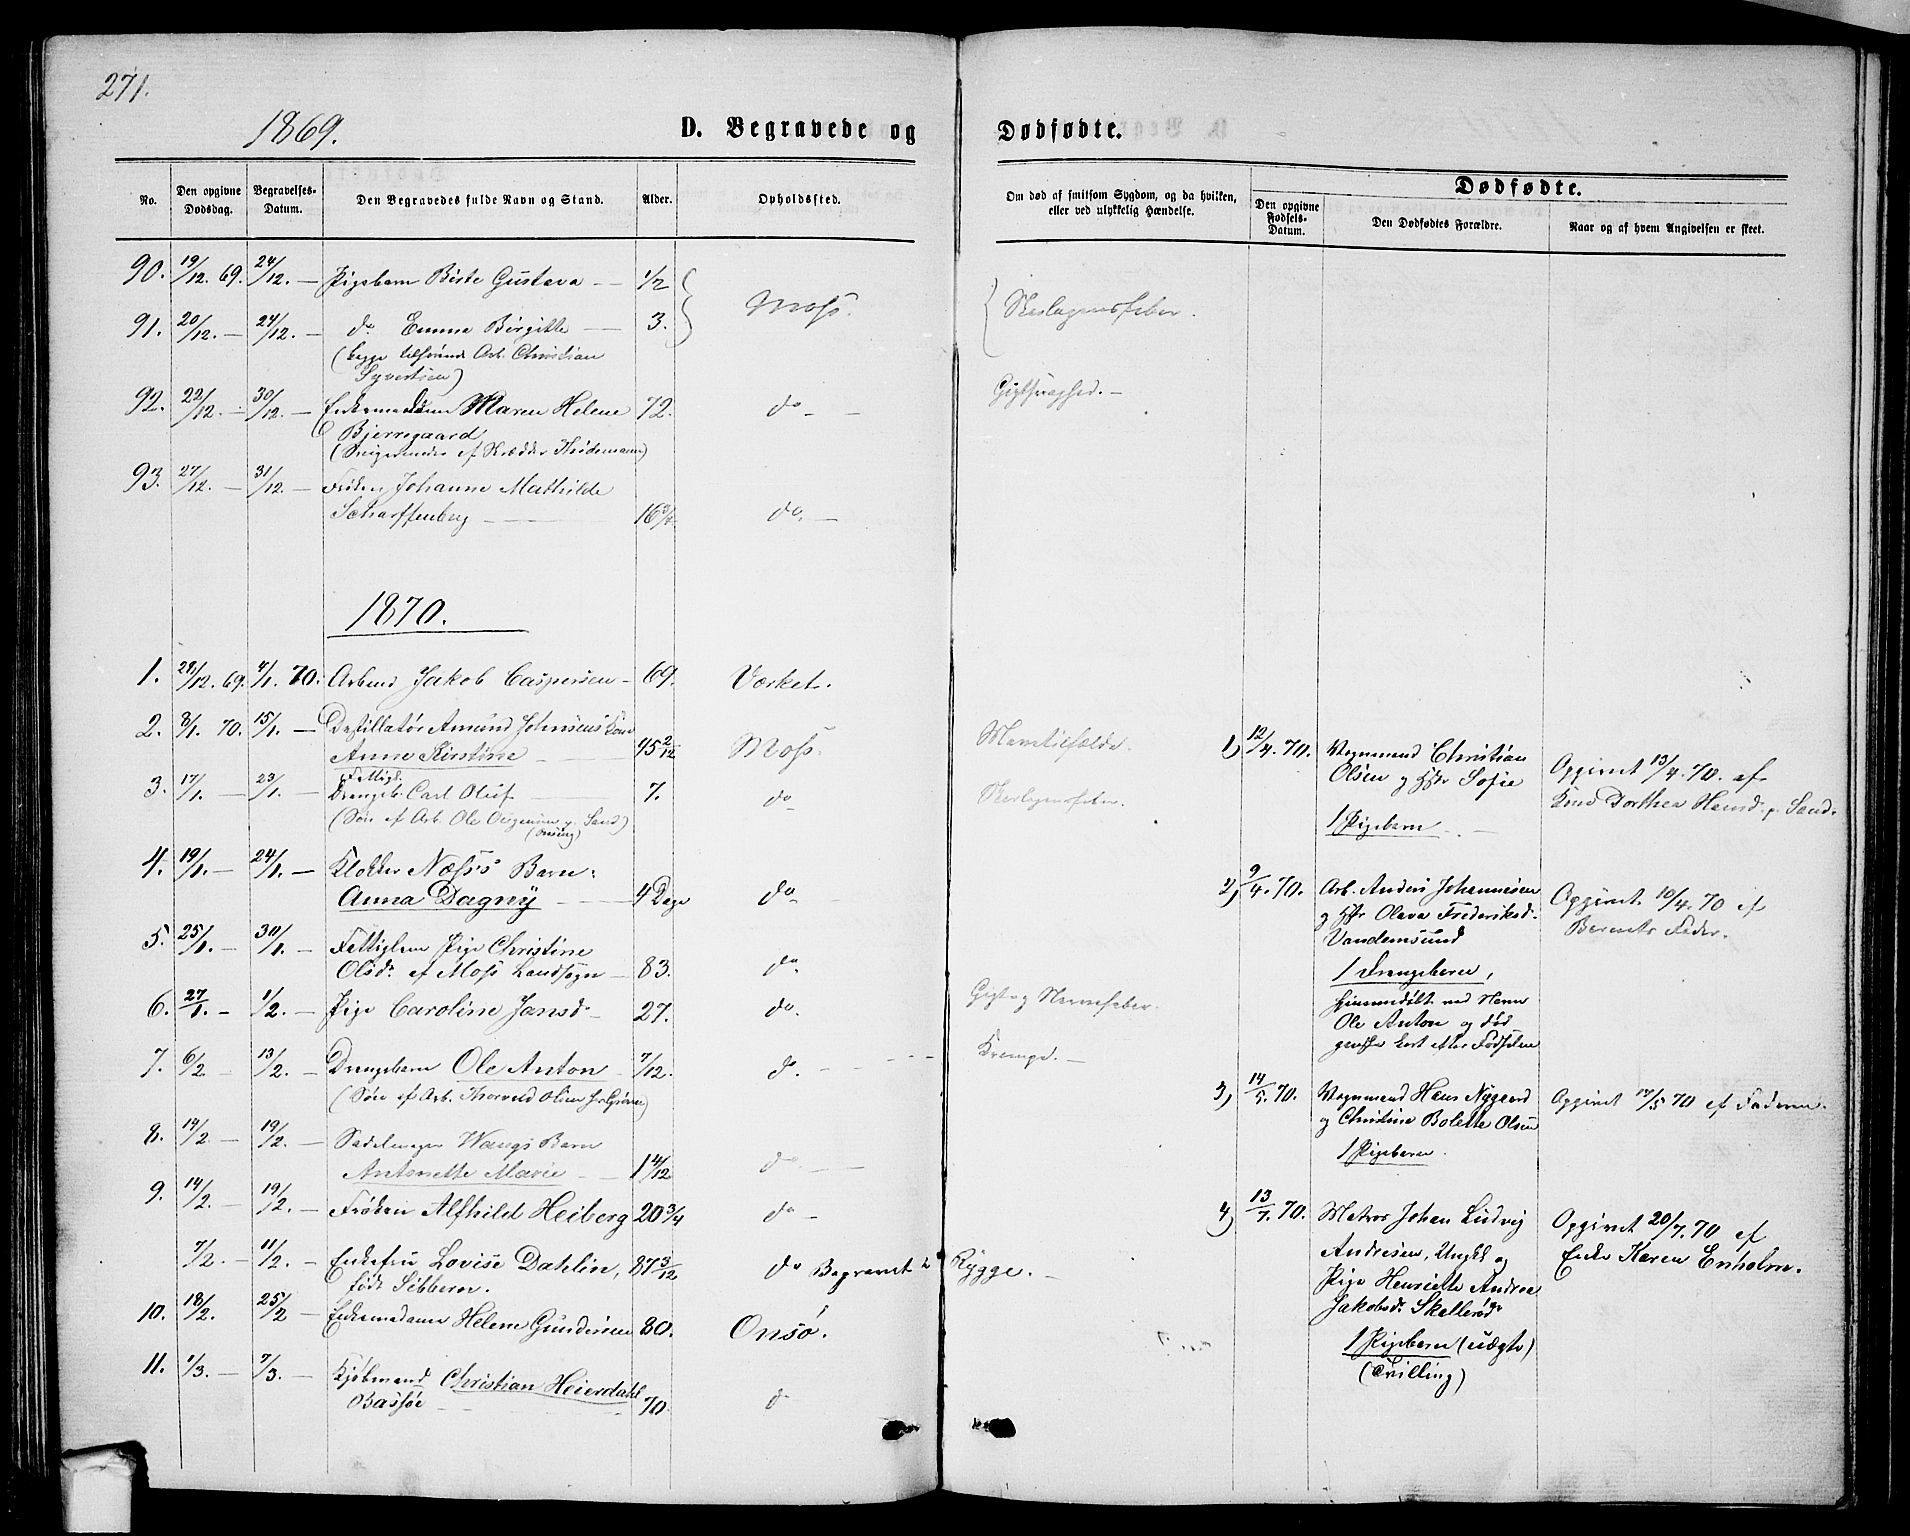 271.
1869.
D. Begravede og Dødfødte.
No.
Den opgivne Dødsdag.
Begravelses-Datum.
Den Begravedes fulde Navn og Stand.
Alder.
Opholdssted.
Om død af smitsom Sygdom, og da hvilken, eller ved ulykkelig Hændelse.
Dødfødte.
Den opgivne Fødsels-Datum.
Den Dødfødtes Forældre.
Naar og af hvem Angivelsen er skeet.
90. 19/12. 69. 24/12. — Pigebarn Gustava — 1/2 Moss. Skarlagensfeber.
91. 20/12. — 24/12. — do Emma Birgitte — 3.
(begge tilhørende Arb. Christian
Syvertsen)
92. 22/12. — 30/12. — Enkemadam Maren Helene 72. do — Gigtsvaghed. —
Bjerregaard
(Svigermoder af Skrædder Heidemann)
93. 27/12. — 31/12. — Frøken Johanne Mathilde
Scharffenberg — 16 3/4. do. —
1870.
1. 28/12. 69. 4/1. 70. Arbmd Jakob Caspersen — 69. Værket.
2. 8/1. 70. 15/1. — Destillatør Amund Johnsens Kone
Anne Kirstine — 45 2/12 Moss.
3. 17/1. — 23/1. — Fattigl.
Drengeb. Carl Oluf — 7. do Skarlagensfeber.
(Søn af Arb. Ole p. Sand)
4. 19/1. — 24/1. — Klokker Næss's Barn:
Anna Dagny — 4 Dage do
5. 25/1. — 30/1. — Fattiglem Pige Christine
Olsdr af Moss Landsogn — 83. do
6. 27/1. — 1/2. — Pige Caroline Jansdr — 27. do. Gigt og Nervefeber.
7. 6/2. — 13/2. — Drengebarn Ole Anton — 7/12. d. — Krampe. —
(Søn af Arb. Thorvald Olsen)
8. 14/2. — 19/2. — Sadelmager Wangs Barn
Antonette Marie — 1 4/12 do —
9. 14/2. — 19/2. — Frøken Alfhild Heiberg 20 3/4 do —
7/2. — 11/2. — Enkefru Lovise Dahlin, 87 3/12 do Begravet i Rygge. —
født Sibbern.
10. 18/2. 25/2 — Enkemadame Helene Gundersen 80. Onsø.
11. 1/3. — 7/3. — Kjøbmand Christian Heierdahl
Bassøe — 70. d
1) 12/4. 70. Vognmand Christian
Olsen og Hstr Sofie
1 Pigebarn — Opgivet 13/4. 70. af
Dorthea Hansd. p. Sand.
2) 9/4. 70. Arb. Anders Johannesen
og Hstr Olava Frederiksd.
Vandemsund
1 Drengebarn,
hjemmedøbt ved Navn
Ole Anton og død
ganske kort efter Fødselen
Opgivet 10/4. 70 af
Barnets Fader.
3) 14/5. 70. Vognmand Hans Nygaard
og Christine Bolette Olsen
1 Pigebarn.
Opgivet 17/5 70 af Faderen.
4) 13/7. 70. Matros Johan Ludvig
Andresen, Ungkl og
Pige Henriette Andrea
Jakobsdr Skallerød
1 Pigebarn (uægte)
(Tvilling)
Opgivet 20/7. 70 af
Enke Karen Enholm.